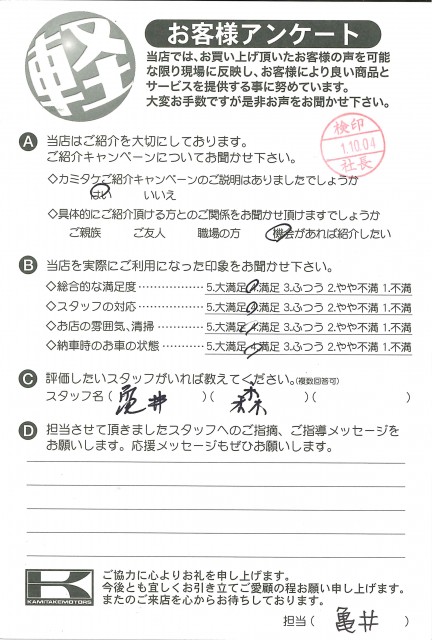 軽
お客様アンケート
当店では、お買い上げ頂いたお客様の声を可能
な限り現場に反映し、お客様により良い商品と
サービスを提供する事に努めています。
大変お手数ですが是非お声をお聞かせ下さい。
検印
1.10.04
社長
A 当店はご紹介を大切にしております。
ご紹介キャンペーンについてお聞かせ下さい。
◇カミタケご紹介キャンペーンのご説明はありましたでしょうか
はい いいえ
◇具体的にご紹介頂ける方とのご関係をお聞かせ頂けますでしょうか
ご親族 ご友人 職場の方 機会があれば紹介したい
B 当店を実際にご利用になった印象をお聞かせ下さい。
◇総合的な満足度……………… 5.大満足 4.満足 3.ふつう 2.やや不満 1.不満
◇スタッフの対応……………… 5.大満足 4.満足 3.ふつう 2.やや不満 1.不満
◇お店の雰囲気、清掃………… 5.大満足 4.満足 3.ふつう 2.やや不満 1.不満
◇納車時のお車の状態………… 5.大満足 4.満足 3.ふつう 2.やや不満 1.不満
C 評価したいスタッフがいれば教えてください。(複数回答可)
スタッフ名( 亀井 )( 森 )( )
D 担当させて頂きましたスタッフへのご指摘、ご指導メッセージを
お願いします。応援メッセージもぜひお願いします。
K
KAMITAKEMOTORS
ご協力に心よりお礼を申し上げます。
今後とも宜しくお引き立てご愛顧の程お願い申し上げます。
またのご来店を心からお待ちしております。
担当( 亀井 )